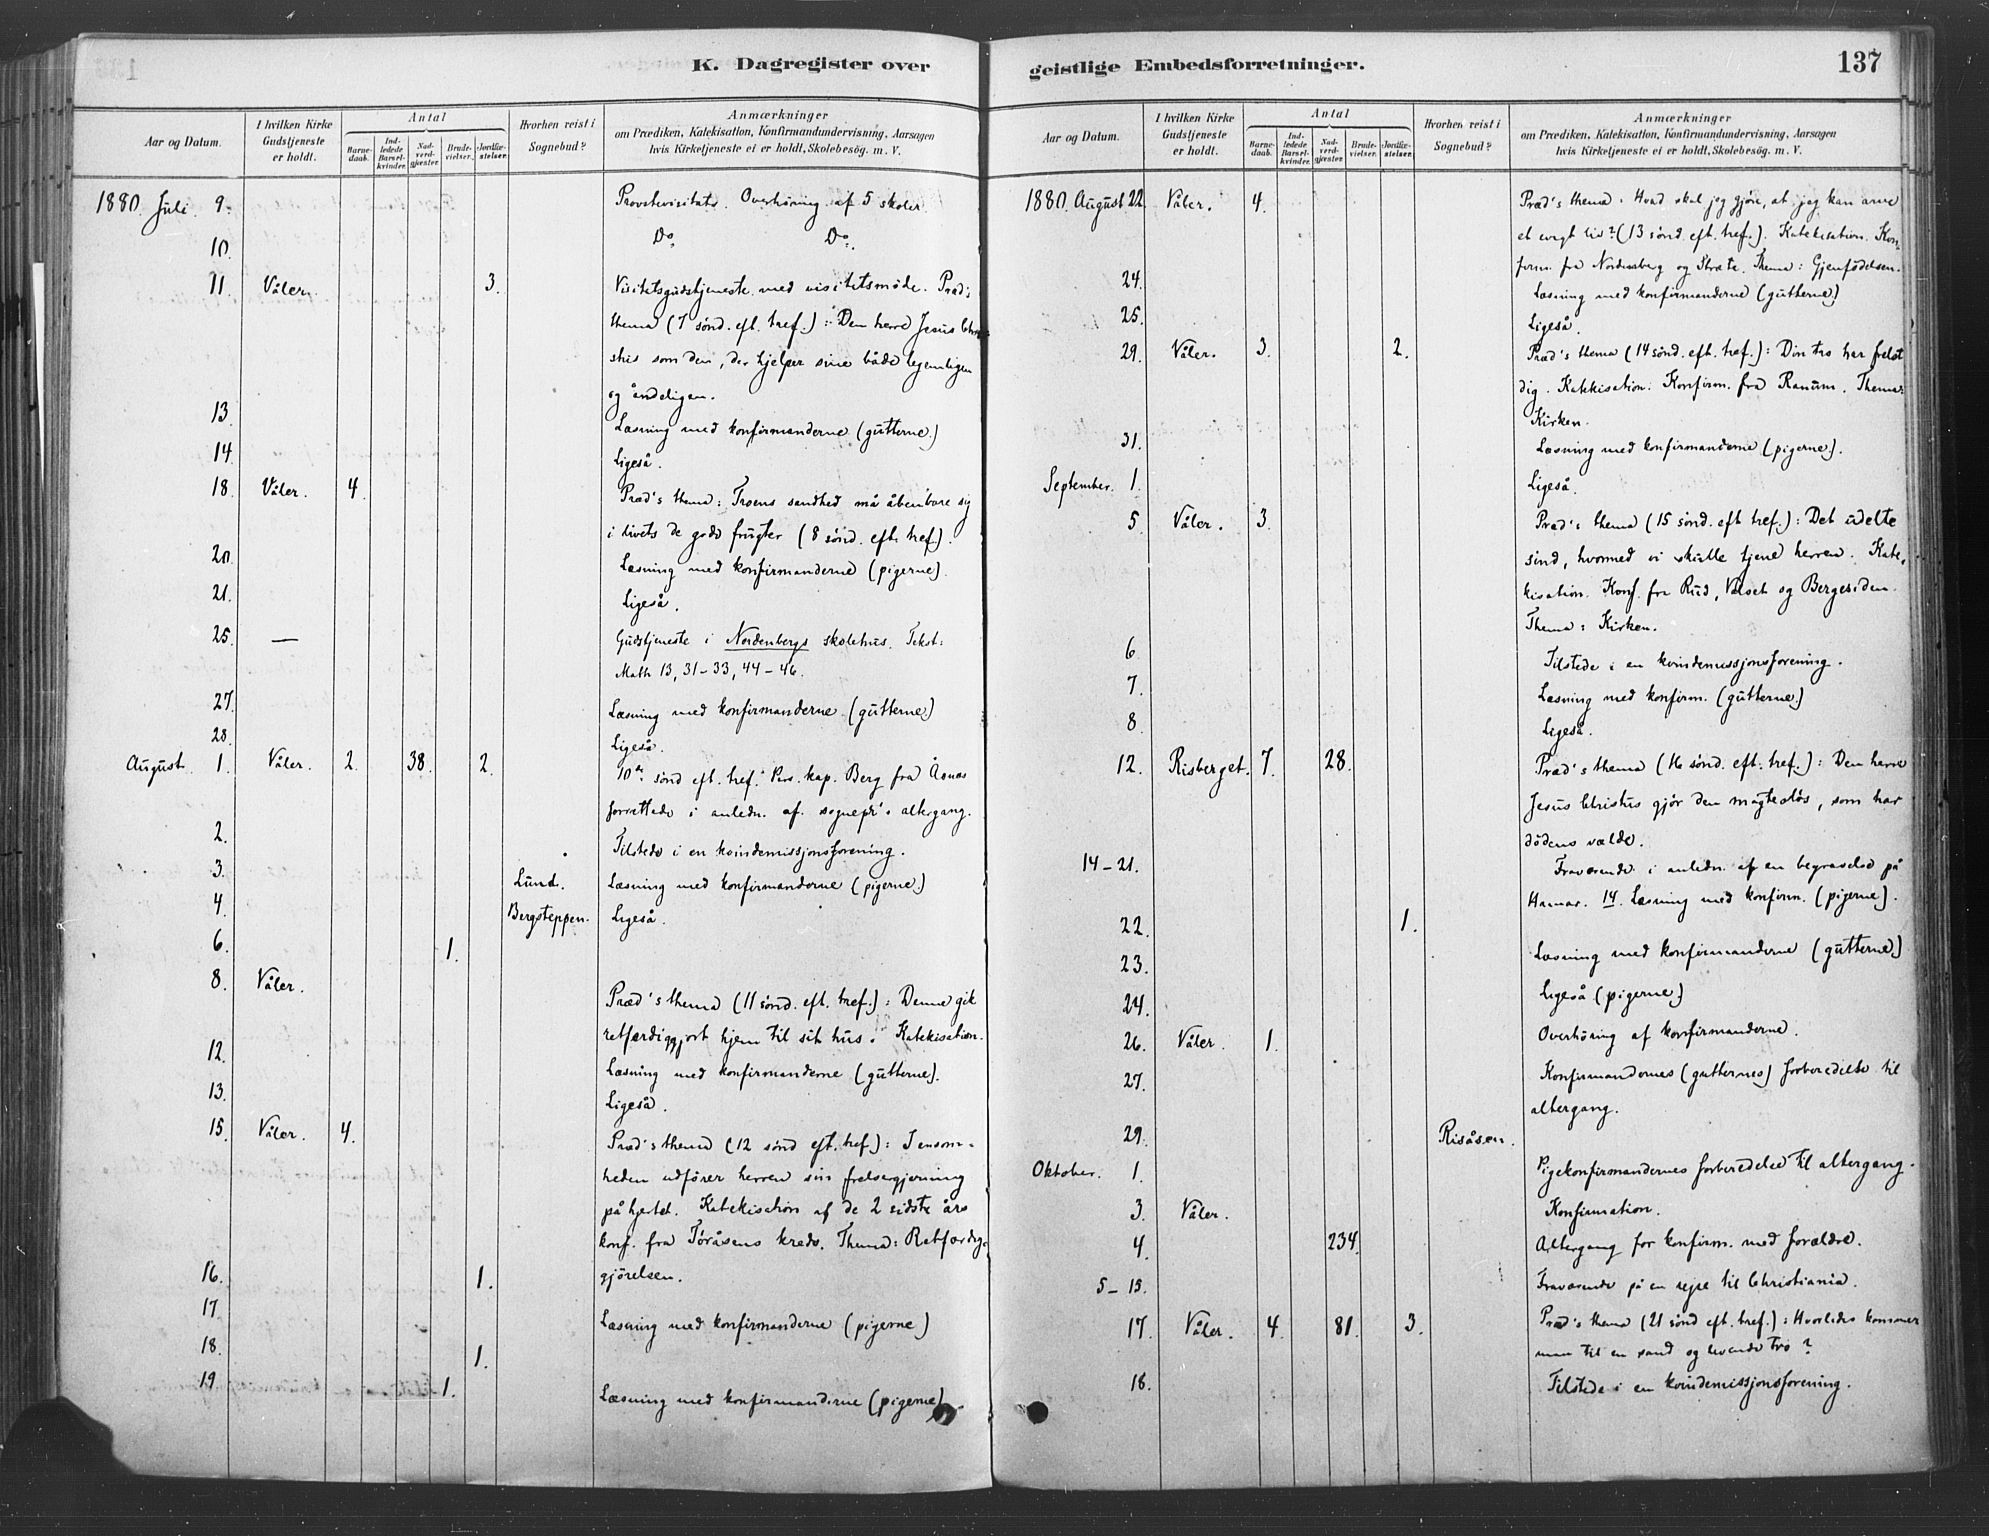 K. Dagregister over
Aar og Datum.
I hvilken Kirke Gudstjeneste er holdt.
Antal
Barnedaab.
Indledede Barselkvinder.
Nadverdgjester.
Brudevielser.
Jordfæstelser.
Hvorhen reist i Sognebud?
Anmærkninger
om Prædiken, Katekisation, Konfirmandundervisning, Aarsagen
hvis Kirketjeneste ei er holdt, Skolebesög. m. V.
1880 Juli 9. Provstevisitats. Overhöring af 5 skoler.
10. Do. Do.
11 Våler. 3. Visitatsgudstjeneste med visitatsmöde. Præd's
thema (7 sönd. eft. tref.): Den herre Jesus Chri-
stus som den, der hjelper sine både legemligen
og åndeligen.
13. Læsning med konfirmanderne (gutterne.)
14. Ligeså.
18. Våler. 4. Præd's thema: Troens sandhed må åbenbare sig
i livets de gode frugter (8 sönd. eft. tref.).
20. Læsning med konfirmanderne (pigerne).
21. Ligeså.
25. — Gudstjeneste i Nordenbergs skolehus. Tekst:
Math 13, 31-33, 44-46.
27. Læsning med konfirmanderne (gutterne.)
28. Ligeså.
August 1. Våler. 2. 38. 2. 10de sönd eft. tref. Pers. kap. Berg fra Åsnes
forrettede i anledn. af sognepr's altergang.
2. Tilstede i en kvindemissjonsforening.
3. Lund. Læsning med konfirmanderne (pigerne.)
4. Bergsteppen. Ligeså.
6. 1.
8. Våler. Præd's thema (11 sönd. eft. tref.): Denne gik
retfærdiggjort hjem til sit hus. Katekisation.
12. Læsning med konfirmanderne (gutterne).
13. Ligeså.
15. Våler. 4. Præd's thema (12 sönd eft. tref.): I ensom-
heden udförer herren sin frelsergjerning
på hjertet. Katekisation af de 2 sidste års
konf. fra Töråsens kreds. Thema: Retfærdig-
gjörelsen.
16. 1.
17. Læsning med konfirmanderne (pigerne)
18. 1.
19 1. Læsning med konfirmanderne (pigerne)
geistlige Embedsforretninger.
137
Aar og Datum.
I hvilken Kirke Gudstjeneste er holdt.
Antal
Barnedaab.
Indledede Barselkvinder.
Nadverdgjester.
Brudevielser.
Jordfæstelser.
Hvorhen reist i Sognebud?
Anmærkninger
om Prædiken, Katekisation, Konfirmandundervisning, Aarsagen
hvis Kirketjeneste ei er holdt, Skolebesög. m. V.
1880. August 22. Våler. 4. Præd's thema. Hvad skal jeg gjöre, at jeg kan arve
et evigt liv? (13 sönd. eft. tref.). Katekisation. Kon-
firm. fra Nordenberg og Stræte. Thema: Gjenfödelsen.
24. Læsning med konfirmanderne (gutterne.)
25. Ligeså.
29. Våler. 3. 2. Præd's thema (14 sönd. eft. tref.): Din tro har frelst
dig. Katekisation. Konfirm. fra Ranum. Thema:
Kirken.
31. Læsning med konfirmanderne (pigerne).
September. 1. Ligeså.
5. Våler. 3. Præd's thema (15 sönd. eft tref.): Det udelte
sind, hvormed vi skulle tjene herren. Kate-
kisation. Konf. fra Rud, Valset og Bergesiden.
Thema: Kirken.
6. Tilstede i en kvindemissjonsforening.
7. Læsning med konfirm. (gutterne.)
8. Ligeså.
12. Risberget. 7. 28. Præd's thema (16 sönd. eft. tref.): Den herre
Jesus Christus gjör den magteslös, som har
dödens vælde.
14-21. Fraværende i anledn. af en begravelse på
Hamar. 14. Læsning med konfirm. (pigerne).
22. 1. Læsning med konfirmanderne (gutterne.)
23. Ligeså (pigerne)
24. Overhöring af konfirmanderne.
26. Våler. 1.
27. Konfirmandernes (gutternes) forberedelse til
altergang.
29. Risåsen.
Oktober. 1. Pigekonfirmandernes forberedelse til altergang.
3. Våler. Konfirmation.
4. 234. Altergang for konfirm. med forældre.
5-13. Fraværende på en rejse til Christiania.
17. Våler. 4. 81. 3. Præd's thema (21 sönd eft. tref.): Hvorledes kommer
man til en sand og levende tro?
18. Tilstede i en kvindemissjonsforening.